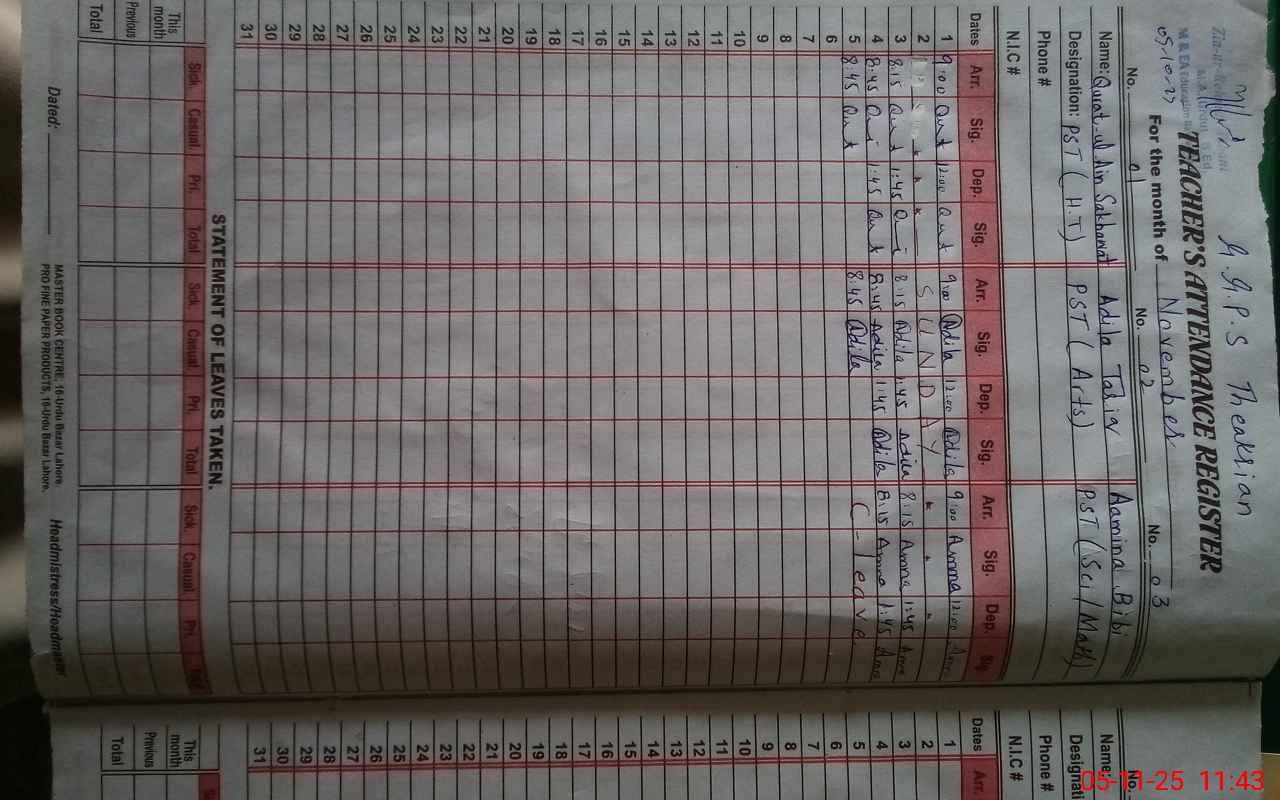 G.G.P.S Theakrian
TEACHER'S ATTENDANCE REGISTER
For the month of November
No. 01 No. 02 No. 03
Name: Qurat-ul-Ain Sakhawat Adila Tahir Aamina Bibi
Designation: PST (H.T) PST (Arts) PST (Sci/Math)
Phone #
N.I.C #
Dates Arr. Sig. Dep. Sig. Arr. Sig. Dep. Sig. Arr. Sig. Dep. Sig.
1 9:00 Qut 12:00 Qut 9:00 Adila 12:00 Adila 9:00 Amna 12:00 Amna
2 SUNDAY
3 8:15 Qut 1:45 Qut 8:15 Adila 1:45 Adila 8:15 Amna 1:45 Amna
4 8:45 Qut 1:45 Qut 8:45 Adila 1:45 Adila 8:15 Amna 1:45 Amna
5 8:45 Qut 8:45 Adila C-leave
6
7
8
9
10
11
12
13
14
15
16
17
18
19
20
21
22
23
24
25
26
27
28
29
30
31
STATEMENT OF LEAVES TAKEN.
Sick. Casual. Pri. Total Sick. Casual. Pri. Total Sick. Casual. Pri. Total
This month
Previous
Total
MASTER BOOK CENTRE, 16-Urdu Bazar Lahore.
PRO FINE PAPER PRODUCTS, 16-Urdu Bazar Lahore.
Dated: Headmistress/Headmaster
No.
Name:
Designati
Phone #
N.I.C #
Dates Arr.
1
2
3
4
5
6
7
8
9
10
11
12
13
14
15
16
17
18
19
20
21
22
23
24
25
26
27
28
29
30
31
This month
Previous
Total
05-11-25 11:43